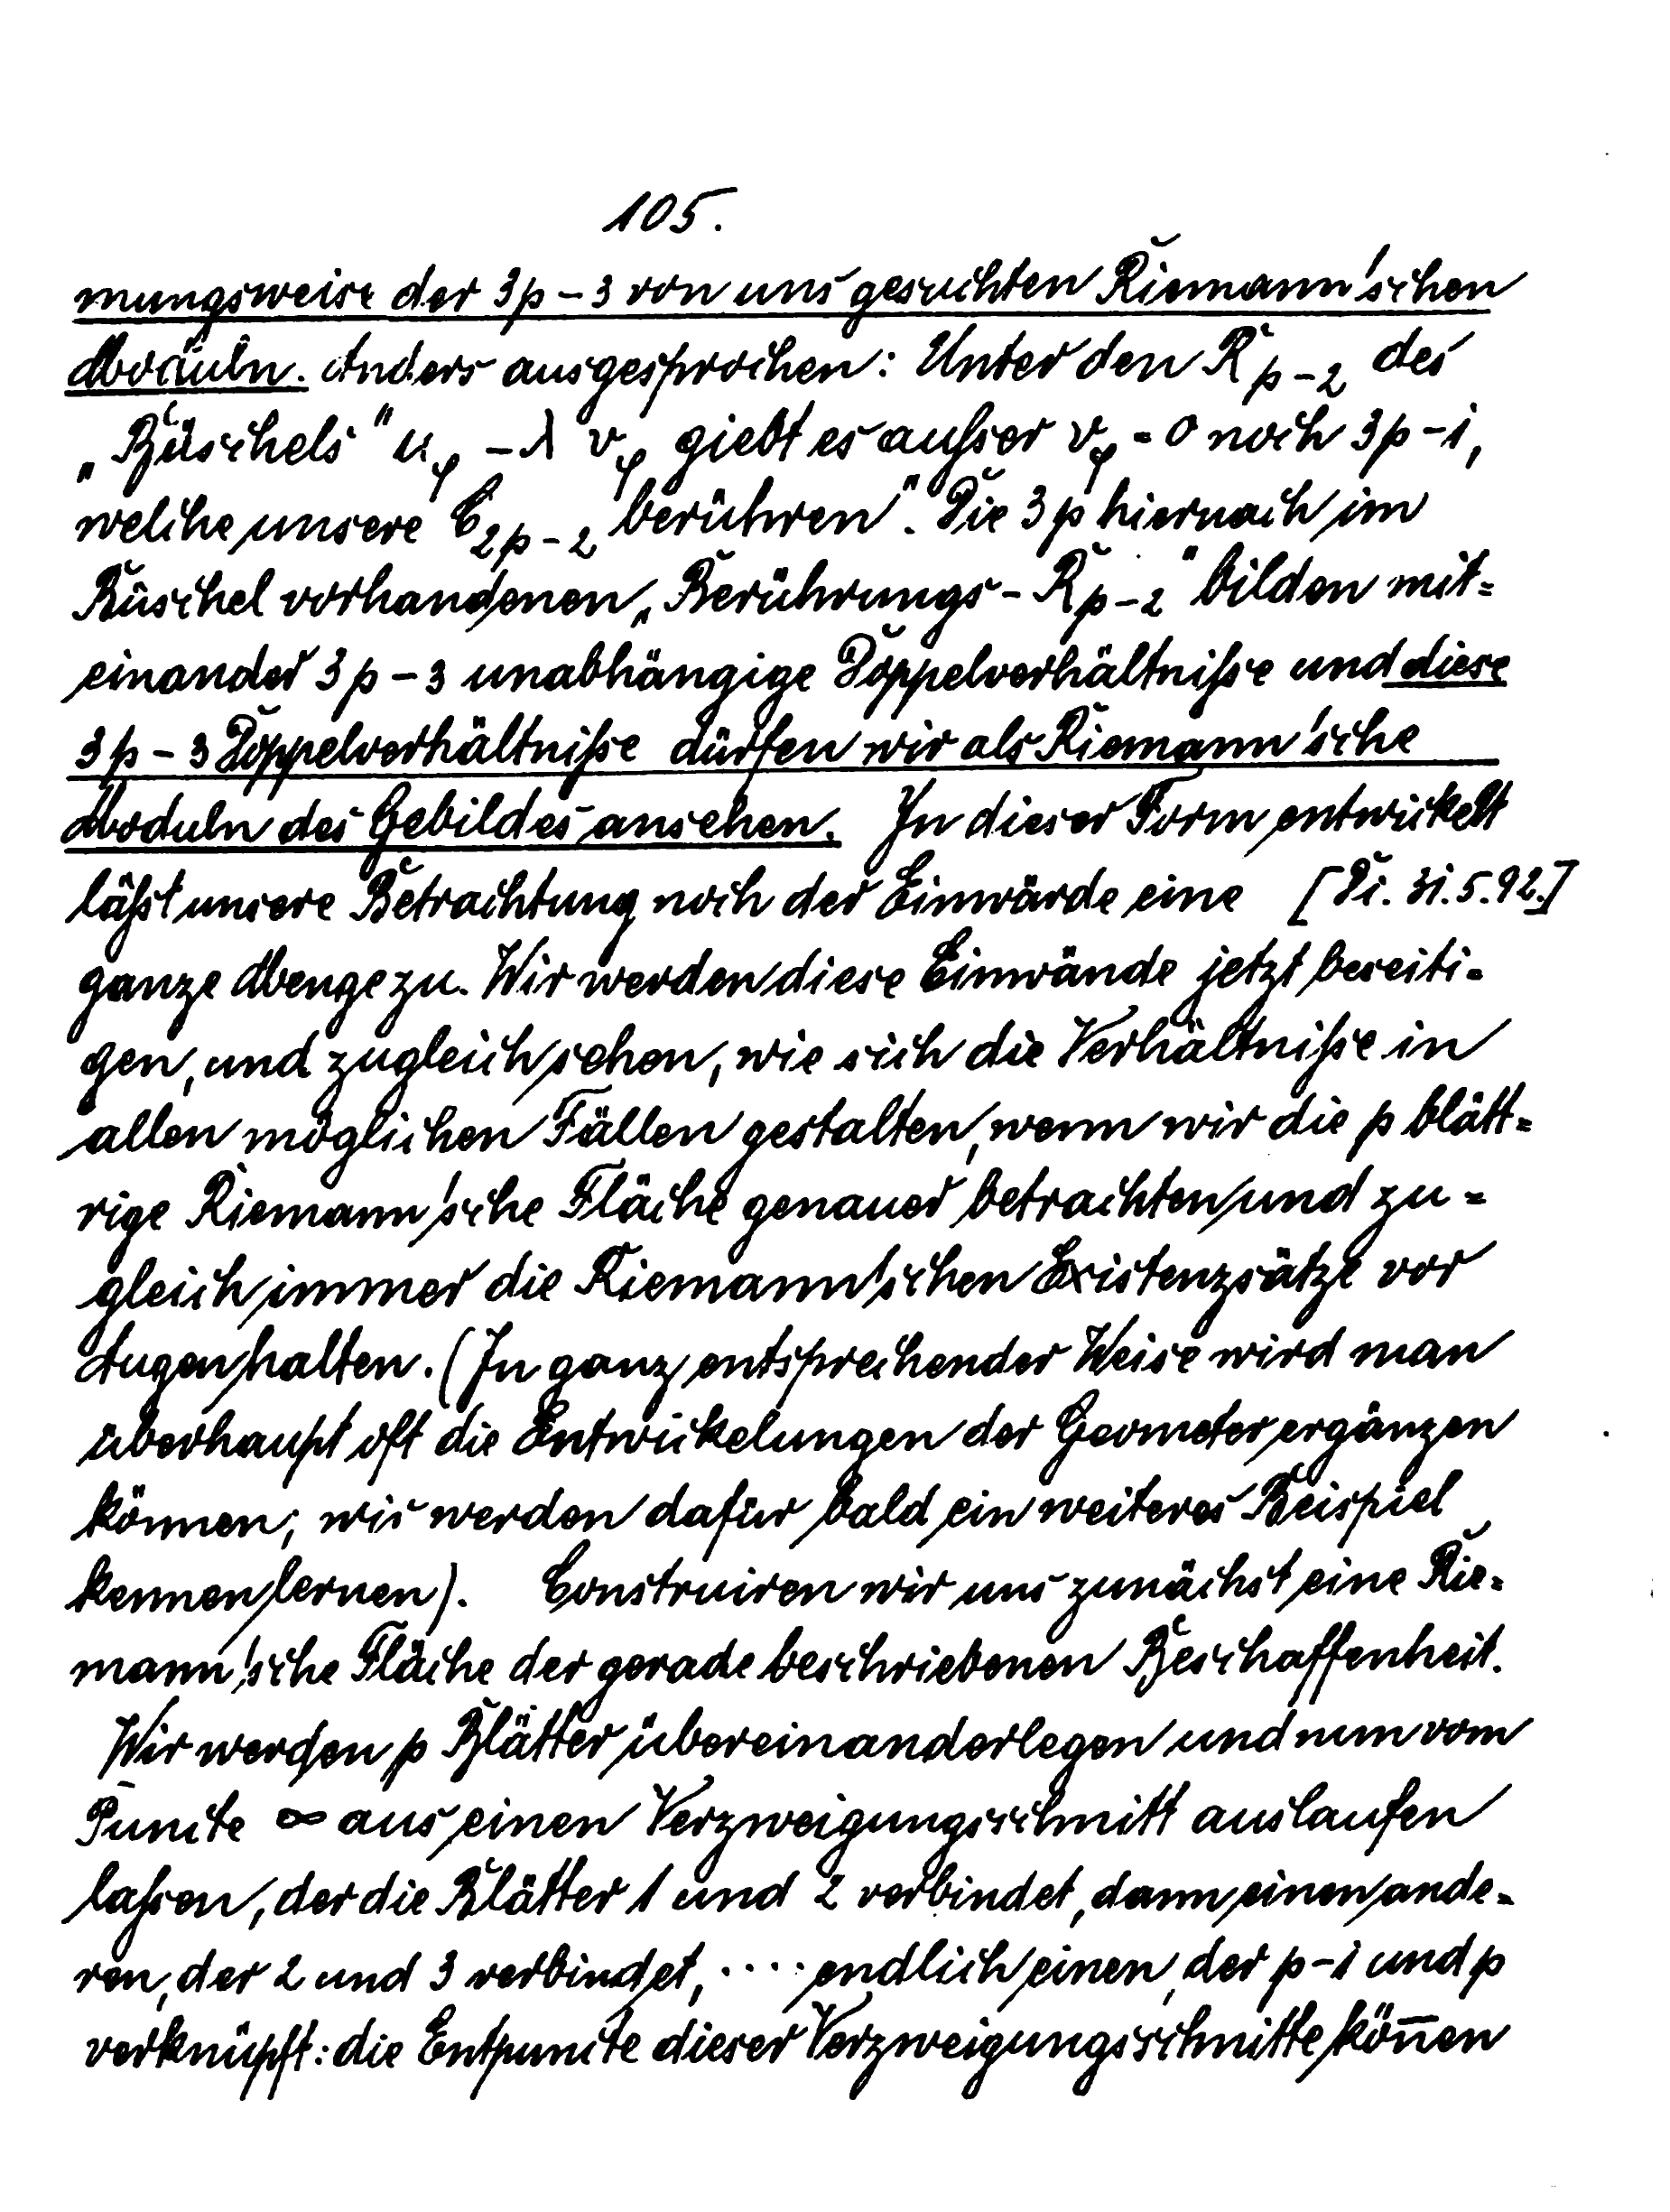 105.
mungsweise der 3p-3 von uns gesuchten Riemann'schen
Moduln. Anders ausgesprochen: Unter den R_{p-2} des
„Büschels" u_φ - λ v_φ giebt es ausser v_φ = 0 noch 3p-1,
welche unsere C_{2p-2} „berühren". Die 3p hiernach im
Büschel vorhandenen „Berührungs-R_{p-2}" bilden mit=
einander 3p-3 unabhängige Doppelverhältnisse und diese
3p-3 Doppelverhältnisse dürfen wir als Riemann'sche
Moduln des Gebildes ansehen. In dieser Form entwickelt
lässt unsere Betrachtung noch der Einwärde eine [Di. 31.5.92.]
ganze Menge zu. Wir werden diese Einwände jetzt beseiti=
gen, und zugleich sehen, wie sich die Verhältnisse in
allen möglichen Fällen gestalten, wenn wir die p blätt=
rige Riemann'sche Fläche genauer betrachten und zu=
gleich immer die Riemann'schen Existenzsätze vor
Augen halten. (In ganz entsprechender Weise wird man
überhaupt oft die Entwickelungen der Geometer ergänzen
können; wir werden dafür bald ein weiteres Beispiel
kennen lernen). Construiren wir uns zunächst eine Rie=
mann'sche Fläche der gerade beschriebenen Beschaffenheit.
Wir werden p Blätter übereinanderlegen und nun vom
Puncte ∞ aus einen Verzweigungsschnitt auslaufen
lassen, der die Blätter 1 und 2 verbindet, dann einen ande=
ren, der 2 und 3 verbindet, .... endlich einen, der p-1 und p
verknüpft: die Entpuncte dieser Verzweigungsschnitte kön̄en